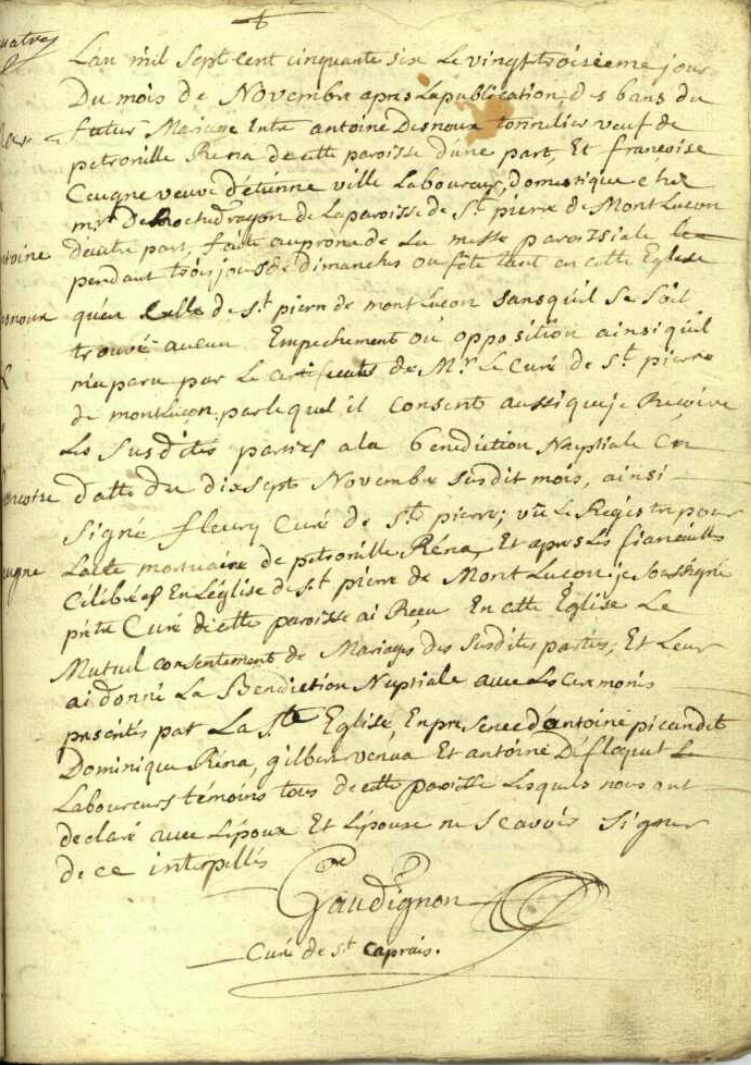 L'an mil sept cent cinquante six le vingt troisieme jour
Du mois de Novembre apres la publication des bans du
futur Mariage Entre antoine Desnoux tonnelier veuf de
petronille Réna de cette paroisse d'une part, Et francoise
Caugne veuve d'étienne ville Laboureur, domestique chez
mr. De Rochedragon de la paroisse de St. pierre de Mont Lucon
d'autre part, faite au prone de La messe paroissiale
pendant trois jours de dimanches ou fête tant en cette Eglise
qu'en celle de St. pierre de mont Lucon sans qu'il se soit
trouvé aucun Empechement ou opposition ainsi qu'il
m'a paru par le certificat de Mr. Le Curé de St. pierre
de montlucon, par lequel il consent aussi que je Recoive
Les susdites parties a la benediction Nuptiale En
datte du dix sept Novembre susdit mois, ainsi
signé fleury Curé de St. pierre; vû le Registre pour
L'acte mortuaire de petronille Réna, Et apres les fiancailles
Célébrées En L'église de St. pierre de Mont Lucon je soussigné
prêtre Curé de cette paroisse ai Recu En cette Eglise Le
Mutuel consentement de Mariage des susdites parties, Et Leur
ai donné La Benediction Nuptiale avec Les ceremonies
prescrites par La Ste Eglise, En presence d'antoine picandet
Dominique Réna, gilbert venua Et antoine Défloquet
Laboureurs témoins tous de cette paroisse Lesquels nous ont
declaré avec L'époux Et L'épouse ne scavoir signer
de ce interpellés
Gaudignon
Curé de St. Caprais.
uatre
ntoine
esnoux
&
ancoise
augne